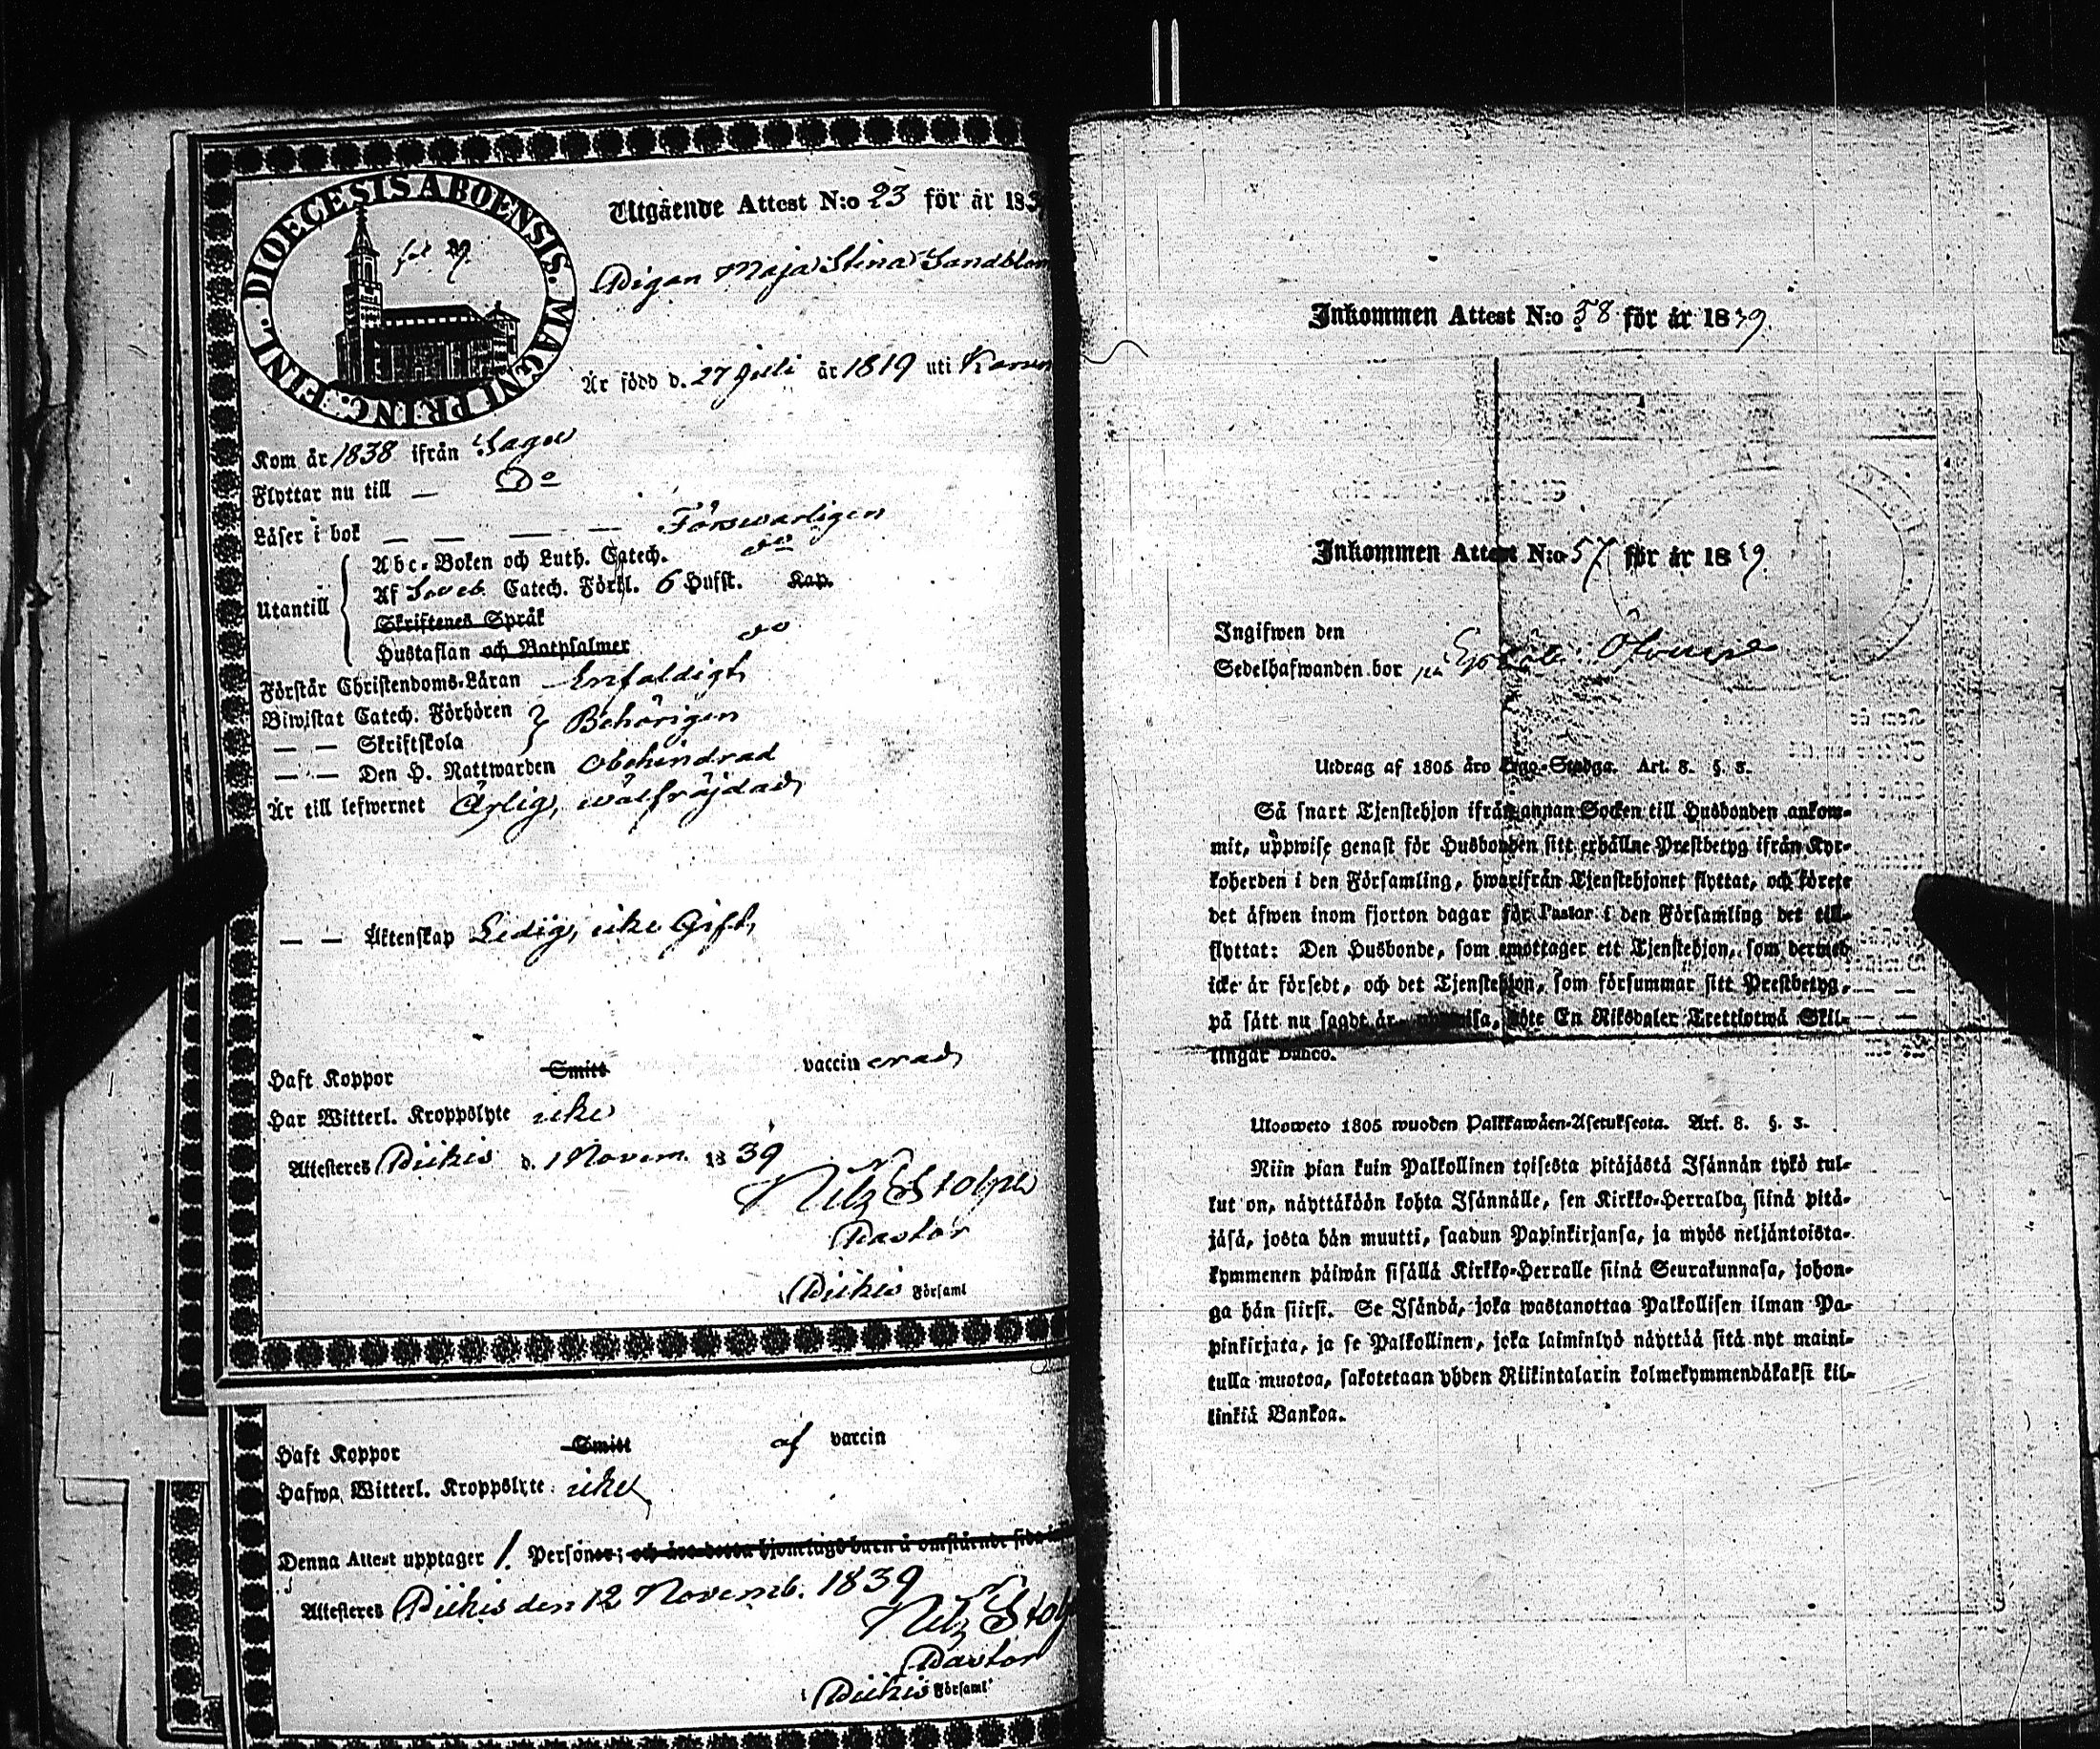 DIOECESIS ABOENSIS. MAGNI PRINC. FINL.
fol. 39.
Utgående Attest N:o 23 för år 183
Pigan Maja Stina Sandblom
Är född d. 27 Juli år 1819 uti
Kom år 1838 ifrån Sagu
Flyttar nu till — Do
Läser i bok — — — — Förswarligen
Utantill
Abc-Boken och Luth. Catech. do
Af Sveb. Catech. Förkl. 6 Hufst. Kap.
Skriftenes Språk
Hustaflan och Botpsalmer do
Förstår Christendoms-Läran Enfaldigt
Biwistat Catech. Förhören
— — Skriftskola Behörigen
— — Den H. Nattwarden Obehindrad
Är till lefwernet Ärlig, wälfräjdad
— — Äktenskap Ledig, icke Gift,
Haft Koppor Smitt vaccinerad
Har Witterl. Kroppslyte icke
Attesteres Piikis d. 1 Novem. 1839
Nils Stolpe
Pastor
Piikis Församl
Haft Koppor Smitt af vaccin
Hafwa Witterl. Kroppslyte icke
Denna Attest upptager 1. Personer; och äro detta hjonelags barn å omstående sida
Attesteres Piikis den 12 Novemb. 1839
Nils Stolp
Pastor
Piikis Församl
Inkommen Attest N:o 58 för år 1839.
Inkommen Attest N:o 57 för år 1839.
Ingifwen den
Sedelhafwanden bor på
Utdrag af 1805 års Lego-Stadga. Art. 8. §. 3.
Så snart Tjenstehjon ifrån annan Socken till Husbonden ankom-
mit, uppwise genast för Husbonden sitt erhållne Prestbetyg ifrån Kyr-
koherden i den Församling, hwarifrån Tjenstehjonet flyttat, och förete
det äfwen inom fjorton dagar för Pastor i den Församling det till-
flyttat: Den Husbonde, som emottager ett Tjenstehjon, som dermed
icke är försedt, och det Tjenstehjon, som försummar sitt Prestbetyg,
på sätt nu sagdt är, uppwisa, böte En Riksdaler Trettiotwå Skil-
lingar Banco.
Ulosweto 1805 wuoden Palkkawäen-Asetuksesta. Art. 8. §. 3.
Niin pian kuin Palkollinen toisesta pitäjästä Isännän tykö tul-
lut on, näyttäköön kohta Isännälle, sen Kirkko-Herralda, siinä pitä-
jäsä, josta hän muutti, saadun Papinkirjansa, ja myös neljäntoista-
kymmenen päiwän sisällä Kirkko-Herralle siinä Seurakunnasa, johon-
ga hän siirsi. Se Isändä, joka wastanottaa Palkollisen ilman Pa-
pinkirjata, ja se Palkollinen, joka laiminlyö näyttää sitä nyt maini-
tulla muotoa, sakotetaan yhden Riikintalarin kolmekymmendäkaksi kil-
linkiä Bankoa.